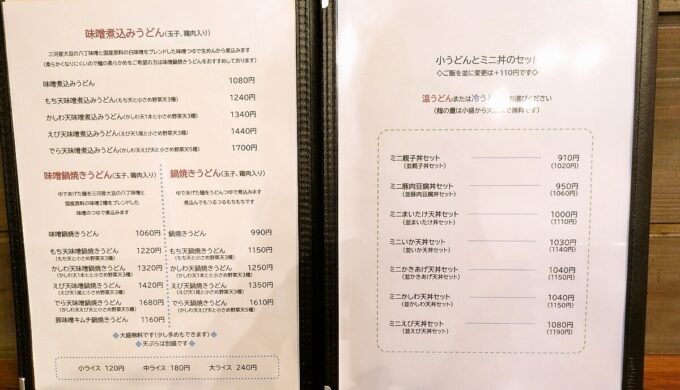 味噌煮込みうどん(玉子、鶏肉入り)
三河産大豆の八丁味噌と国産原料の白味噌をブレンドした味噌つゆで生めんから煮込みます
(柔らかくなりにくいので麺の柔らかめをご希望の方は味噌鍋焼きうどんをおすすめしております)
味噌煮込みうどん 1080円
もち天味噌煮込みうどん(もち天と小さめ野菜天3種) 1240円
かしわ天味噌煮込みうどん(かしわ天1本と小さめ野菜天3種) 1340円
えび天味噌煮込みうどん(えび天1尾と小さめ野菜天3種) 1440円
でら天味噌煮込みうどん(かしわ天えび天と小さめ野菜天5種) 1700円
味噌鍋焼きうどん(玉子、鶏肉入り)
ゆであげた麺を三河産大豆の八丁味噌と
国産原料の味噌2種をブレンドした
味噌のつゆで煮込みます
味噌鍋焼きうどん 1060円
もち天味噌鍋焼きうどん 1220円
(もち天と小さめ野菜天3種)
かしわ天味噌鍋焼きうどん 1320円
(かしわ天1本と小さめ野菜天3種)
えび天味噌鍋焼きうどん 1420円
(えび天1尾と小さめ野菜天3種)
でら天味噌鍋焼きうどん 1680円
(かしわ天えび天と小さめ野菜天5種)
豚味噌キムチ鍋焼きうどん 1160円
鍋焼きうどん(玉子、鶏肉入り)
ゆであげた麺をうどんつゆで煮込みます
煮込んでもつるつるもちもちです
鍋焼きうどん 990円
もち天鍋焼きうどん 1150円
(もち天と小さめ野菜天3種)
かしわ天鍋焼きうどん 1250円
(かしわ天1本と小さめ野菜天3種)
えび天鍋焼きうどん 1350円
(えび天1尾と小さめ野菜天3種)
でら天鍋焼きうどん 1610円
(かしわ天えび天と小さめ野菜天5種)
◆大盛無料です(少し多めもできます)◆
◆天ぷらは別盛です◆
小ライス 120円 中ライス 180円 大ライス 240円
小うどんとミニ丼のセット
◇ご飯を並に変更は+110円です◇
温うどんまたは冷う お選びください
(麺の量は小盛から大 で無料です)
ミニ親子丼セット 910円
(並親子丼セット) (1020円)
ミニ豚肉豆腐丼セット 950円
(並豚肉豆腐丼セット) (1060円)
ミニまいたけ天丼セット 1000円
(並まいたけ天丼セット) (1110円)
ミニいか天丼セット 1030円
(並いか天丼セット) (1140円)
ミニかきあげ天丼セット 1040円
(並かきあげ天丼セット) (1150円)
ミニかしわ天丼セット 1040円
(並かしわ天丼セット) (1150円)
ミニえび天丼セット 1080円
(並えび天丼セット) (1190円)